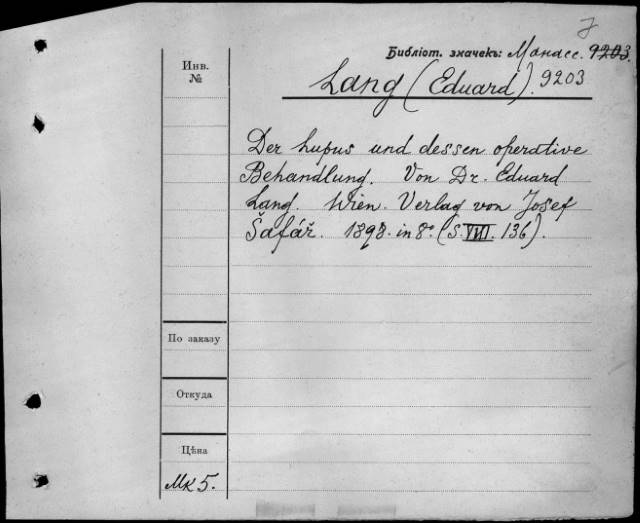 Библіот. значекъ: Манасс. 9203.
9203
Инв.
№
Lang (Eduard).
Der Lupus und dessen operative
Behandlung. Von Dr. Eduard
Lang. Wien. Verlag von Josef
Šafář. 1898. in 8° (S. VIII. 136).
По заказу
Откуда
Цѣна
Mk 5.